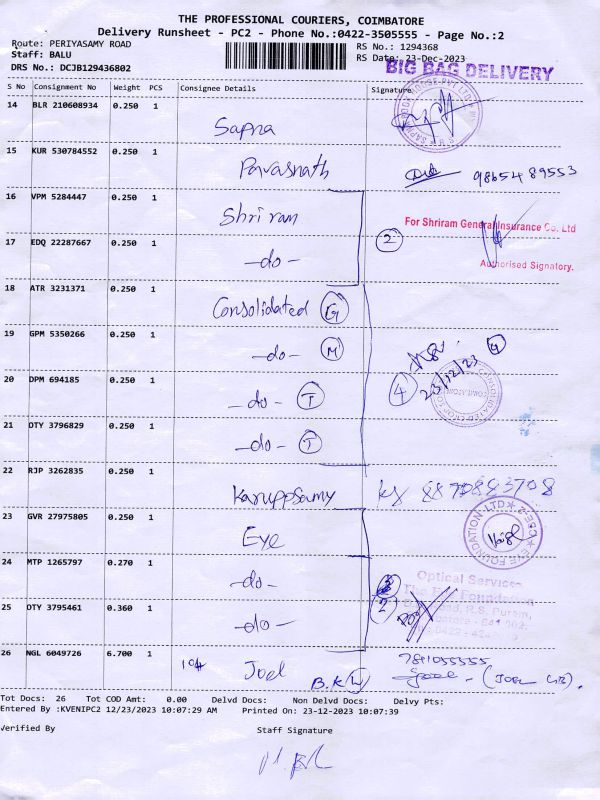 THE PROFESSIONAL COURIERS, COIMBATORE
Delivery Runsheet - PC2 - Phone No.:0422-3505555 - Page No.:2
Route: PERIYASAMY ROAD
Staff: BALU
DRS No.: DCJB129436802
RS No.: 1294368
RS Date: 23-Dec-2023
BIG BAG DELIVERY
S No Consignment No Weight PCS Consignee Details Signature
14 BLR 210608934 0.250 1
Sapna
15 KUR 530784552 0.250 1
Parasnath 98654 89553
16 VPM 5284447 0.250 1
Shriram
For Shriram General Insurance Co. Ltd
17 EDQ 22287667 0.250 1
-do- 2
Authorised Signatory.
18 ATR 3231371 0.250 1
Consolidated G
19 GPM 5350266 0.250 1
-do- M
4
20 DPM 694185 0.250 1
-do- T 4 23/12/23
21 OTY 3796829 0.250 1
-do- T
22 RJP 3262835 0.250 1
Karuppsamy
23 GVR 27975805 0.250 1
Eye
EYE FOUNDATION-LTD
24 MTP 1265797 0.270 1
-do-
Optical Services
The Eye Foundation
25 OTY 3795461 0.360 1
-do- 2
R.S. Puram,
26 NGL 6049726 6.700 1
Joel
B.K
Tot Docs: 26 Tot COD Amt: 0.00 Delvd Docs: Non Delvd Docs: Delvy Pts:
Entered By :KVENIPC2 12/23/2023 10:07:29 AM Printed On: 23-12-2023 10:07:39
Verified By Staff Signature